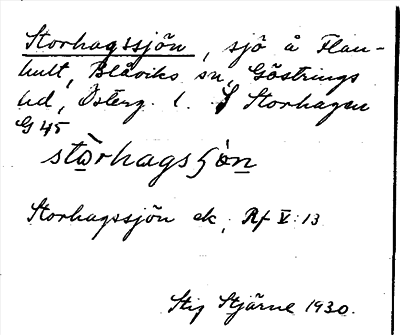 Storhagssjön, sjö å Flan-
hult, Blåviks sn, Göstrings
hd, Österg. l. S Storhagen
G 45
Storhagssjön ek, Rf V:13
Stig Stjärne 1930.